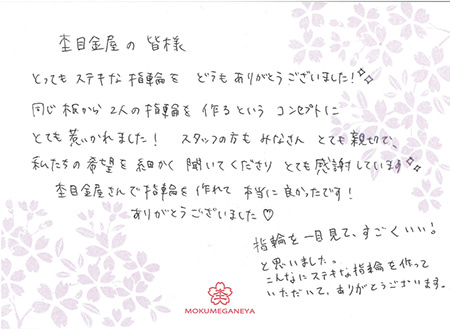 杢目金屋の 皆様
とってもステキな指輪を どうもありがとうございました!
同じ板から 2人の指輪を 作るという コンセプトに
とても惹かれました! スタッフの方も みなさん とても親切で、
私たちの希望を細かく 聞いてくださり とても感謝しています
杢目金屋さんで指輪を作れて 本当に良かったです!
ありがとうございました♡
指輪を一目見て、すごくいい!
と思いました。
こんなにステキな指輪を作って
いただいて、ありがとうございます。
MOKUMEGANEYA